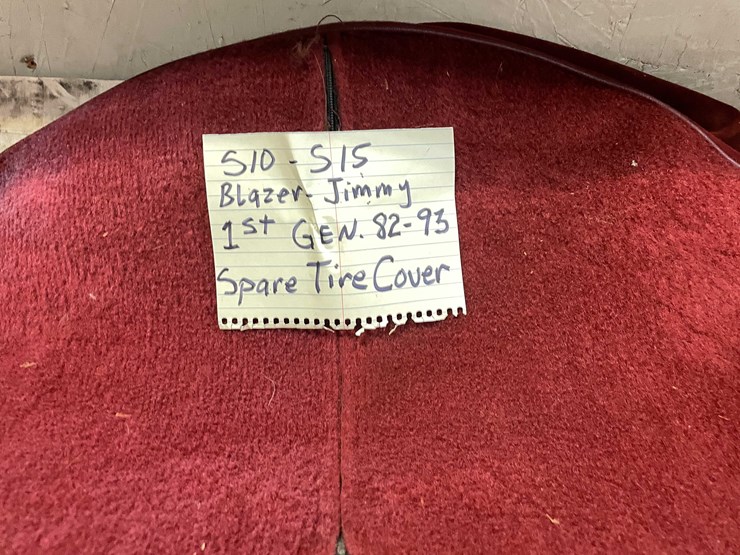 S10 - S15
Blazer - Jimmy
1st GEN. 82-93
Spare Tire Cover